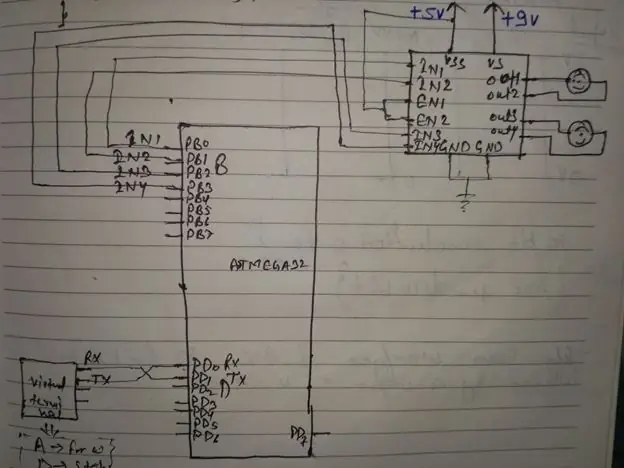 +5v
+9v
VSS
VS
IN1
IN2
EN1
EN2
IN3
IN4
GND
GND
out1
out2
out3
out4
IN1
IN2
IN3
IN4
PB0
PB1
PB2
PB3
PB4
PB5
PB6
PB7
B
ATMEGA32
RX
TX
PD0 RX
PD1 TX
PD2
PD3
PD4
PD5
PD6
D
PD7
virtual
termi
nal
A → forw